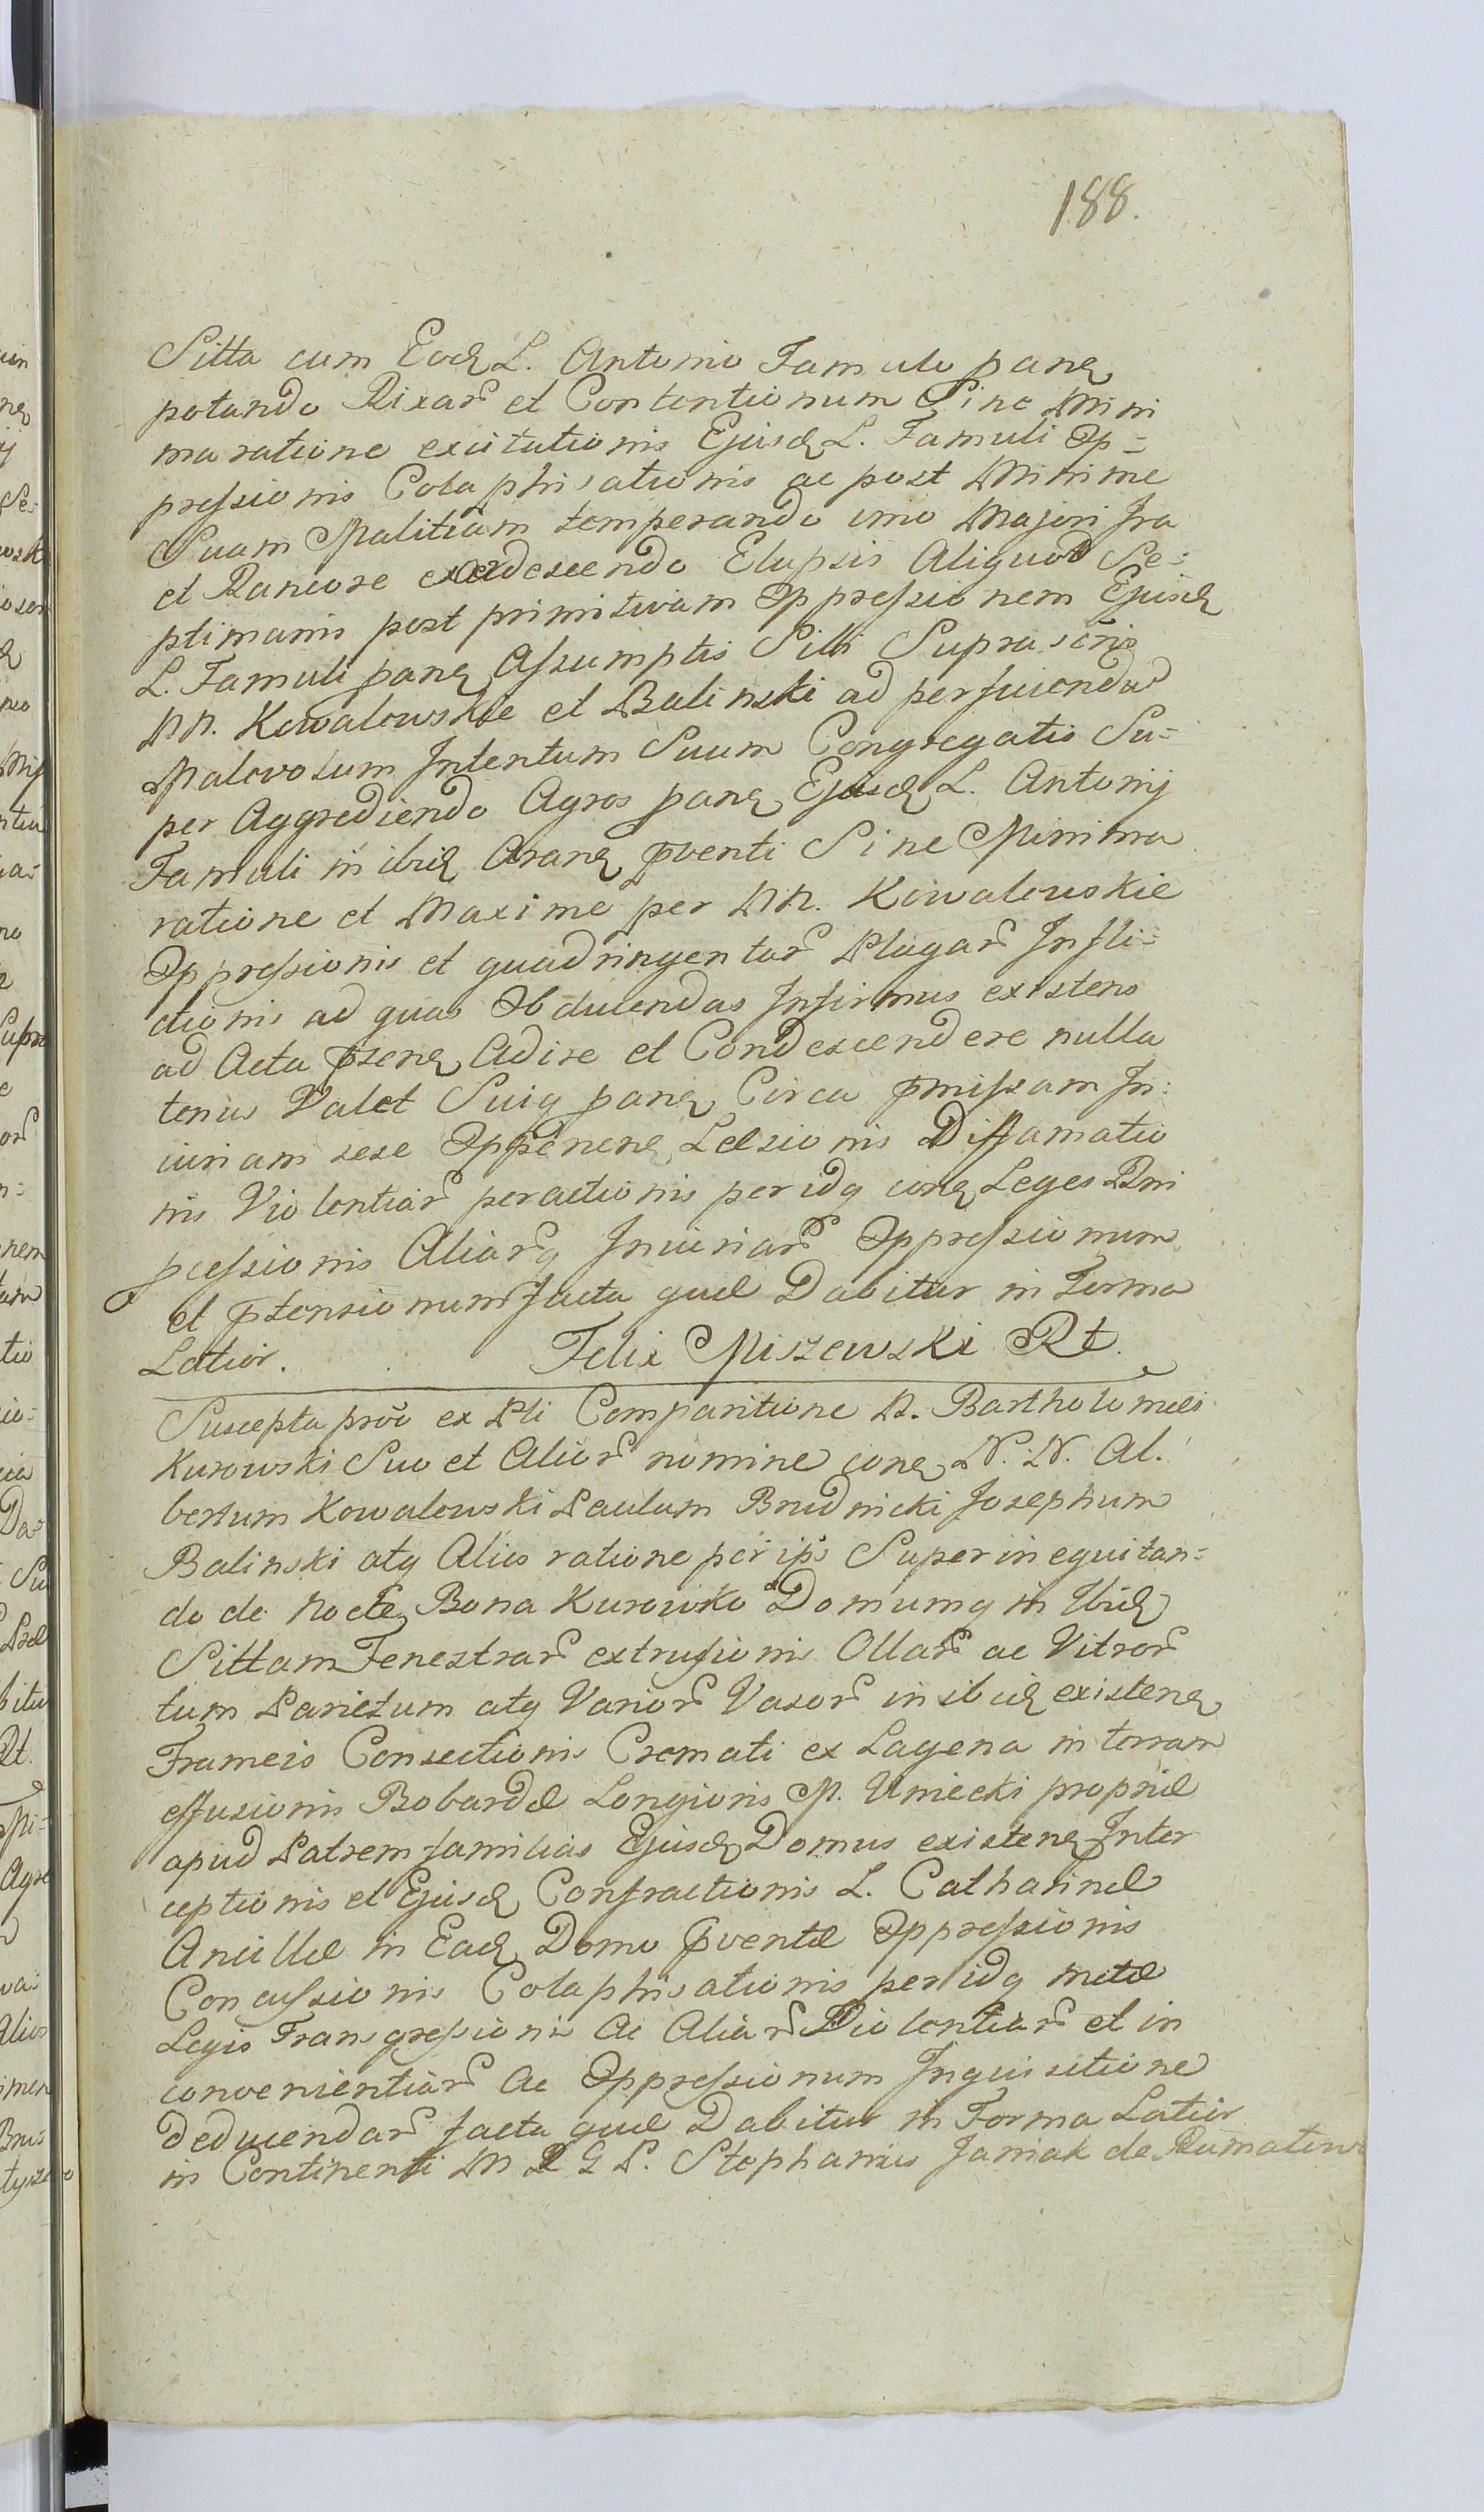 188.
Sitta cum Eod L. Antonio Famulo pane
potando Rixar et Contentionum Sine Mini
ma ratione excitationis Ejusd L. Famuli Op=
pressionis Colaphisationis ac post Minime
Suam Malitiam temperando imo Majori Ira
et Rancore exardescendo Elapsis Aliquod Se=
ptimanis post primitivam Oppressionem Ejusd
L. Famuli pane Assumptis Sibi Suprascris
NN. Kowalewskie et Balinski ad perficiendu
Malevolum Intentum Suum Congregatis Su=
per Aggrediendo Agros pane Ejusd L. Antonij
Famuli in ibid Arane pventi Sine Minima
ratione et Maxime per NN. Kowalewskie
Oppressionis et quadringentar Plagar Infli=
ctionis ad quas Obducendas Infirmus existens
ad Acta psene Adire et Condescendere nulla
tenus Valet Suiq pane Circa pmissam In:
iuriam sese Opponene Læsionis Diffamatio
nis Violentiar peractionis per idq cone Leges Rni
pcessionis Aliarq Iniuriar Oppressionum
et ptensionum facta quæ Dabitur in Forma
Latior. Felix Miszewski Rt.
Suscepta prõ ex Pli Comparitione N. Bartholomæi
Kurowski Suo et Alior nomine cone N. N. Al.
bertum Kowalewski Paulum Brudnicki Josephum
Balinski atq Alios ratione per ips Super inequitan=
do de Nocte Bona Kurowko Domumq in Ibid
Sittam Fenestrar extrusionis Ollar ac Vitror
tum Parietum atq Varior Vasor in ibid existene
Frameis Consectionis Cremati ex Lagena in terram
effusionis Bobardæ Longioris M. Uniecki propriæ
apud Patrem familias Ejusd Domus existene Inter
ceptionis et Ejusd Confractionis L. Catharinæ
Ancillæ in Ead Domo pventæ Oppressionis
Concussionis Colaphisationis per idq metæ
Legis Transgressionis Ac Aliar Violentiar et in
convenientiar Ac Oppressionum Inquisitione
deducendar facta quæ Dabitur in Forma Latior
in Continenti M L G P. Stephanus Jamak de